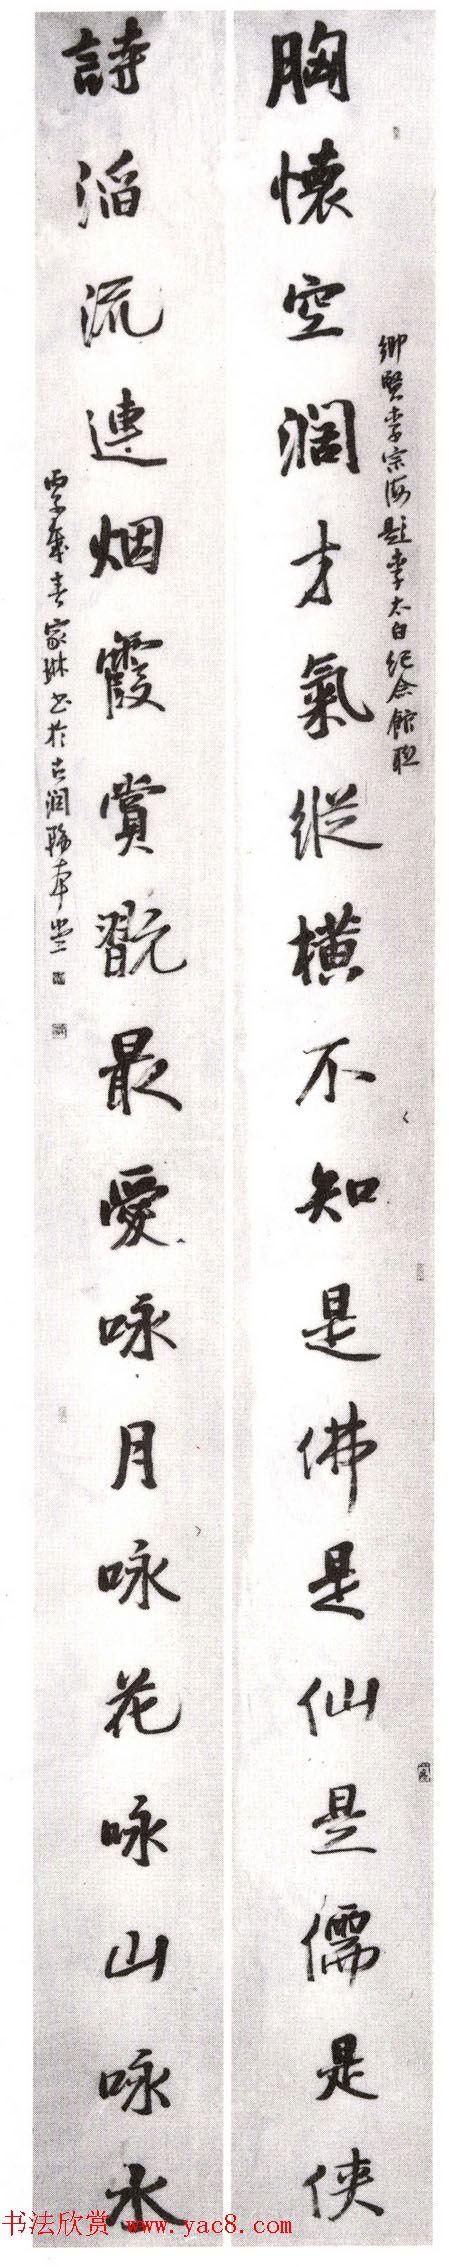 鄉賢李宗海題李太白紀念館聯
胸懷空濶才氣縱橫不知是佛是仙是儒是俠
詩滔流連烟霞賞翫最愛咏月咏花咏山咏水
歲春家琳书於古润堂
书法欣赏 www.yac8.com